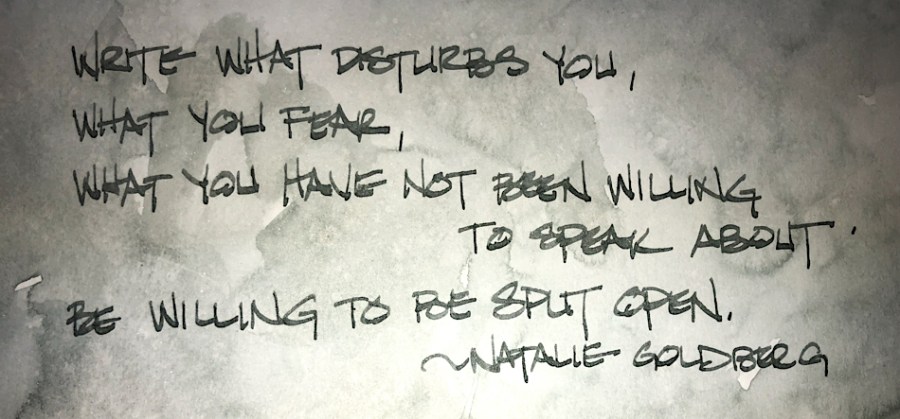 WRITE WHAT DISTURBS YOU,
WHAT YOU FEAR,
WHAT YOU HAVE NOT BEEN WILLING
TO SPEAK ABOUT.
BE WILLING TO BE SPLIT OPEN.
~NATALIE GOLDBERG